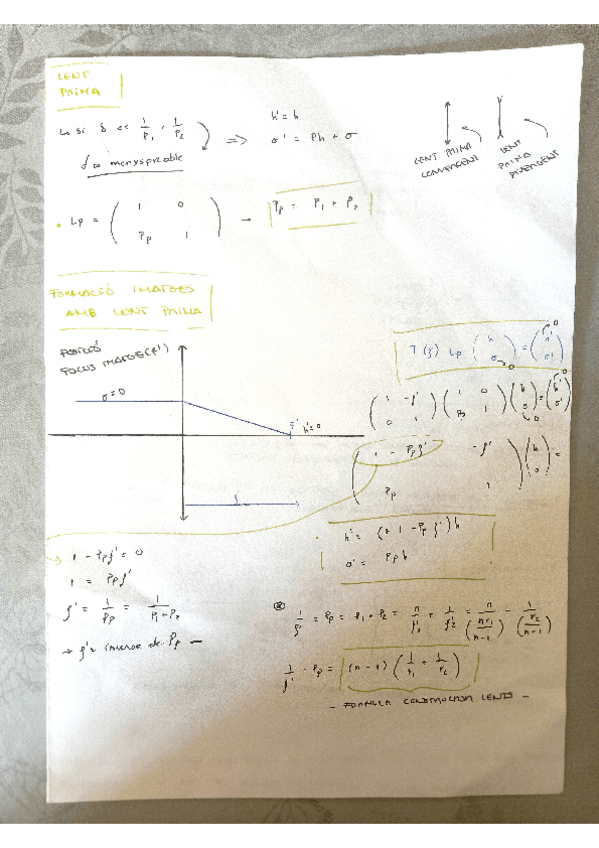 LENT
PRIMA
Lo si δ << 1/P₁, 1/P₂
δ ≈ menyspreable
=>
h' = h
σ' = Ph + σ
LENT PRIMA
CONVERGENT
LENT
PRIMA
DIVERGENT
• Lp = ( 1 0
Pp 1 )
→ Pp = P₁ + P₂
FORMACIÓ IMATGES
AMB LENT PRIMA
POSICIÓ
FOCUS IMATGE (f')
σ = 0
F' h' = 0
f
T(f) Lp ( h σ→0 ) = ( h'→0 σ' )
( 1 -f' 0 1 ) ( 1 0 Pp 1 ) ( h σ→0 ) = ( h'→0 σ' )
( 1 - Pp f' -f'
Pp 1 ) ( h 0 ) =
h' = ( 1 - Pp f' ) h
σ' = Pp h
→ 1 - Pp f' = 0
1 = Pp f'
f' = 1/Pp = 1/(P₁ + P₂)
→ f' = inversa de Pp
1/f' = Pp = P₁ + P₂ =
1/f' = Pp = (n - 1) ( 1/r₁ + 1/r₂ )
- FORMULA CONSTRUCTOR LENTS -